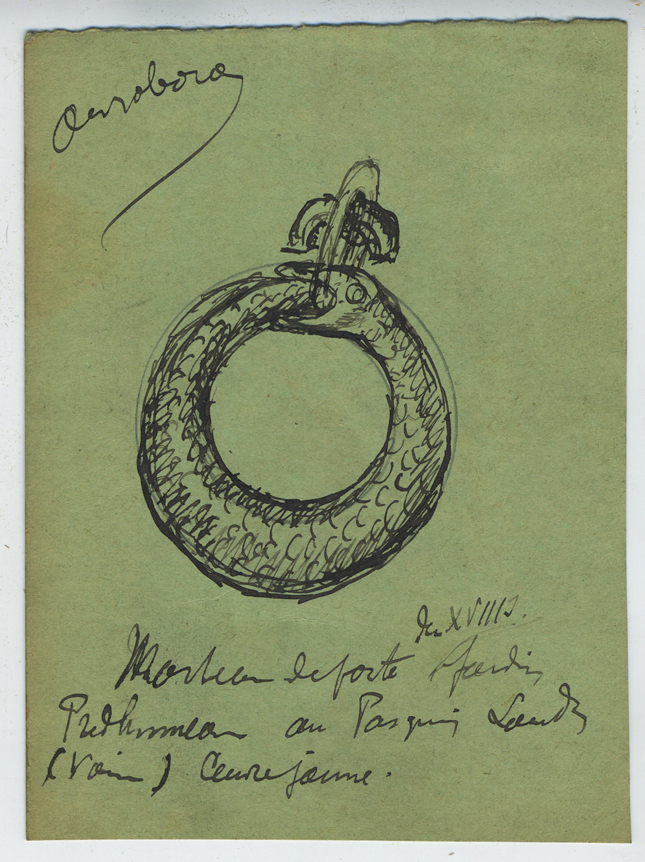 Ourobora
du XVIII s.
Marteau de porte Jardin
Prudhommeau au Pasquin
(Voir) Cuivre jaune.